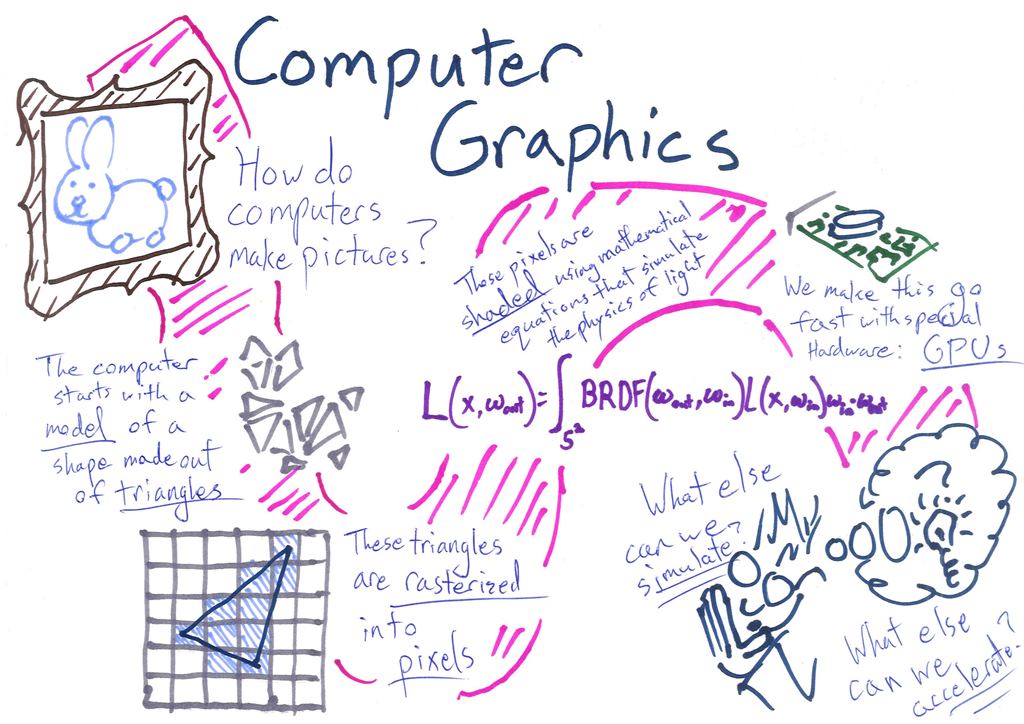 Computer
Graphics
How do
computers
make pictures?
The computer
starts with a
model of a
shape made out
of triangles
These triangles
are rasterized
into
pixels
These pixels are
shaded using mathematical
equations that simulate
the physics of light
L(x, ω_out) = ∫_{S²} BRDF(ω_out, ω_in) L(x, ω_in) ω_in · ω_out
We make this go
fast with special
Hardware: GPUs
What else
can we
simulate?
?
What else
can we
accelerate?